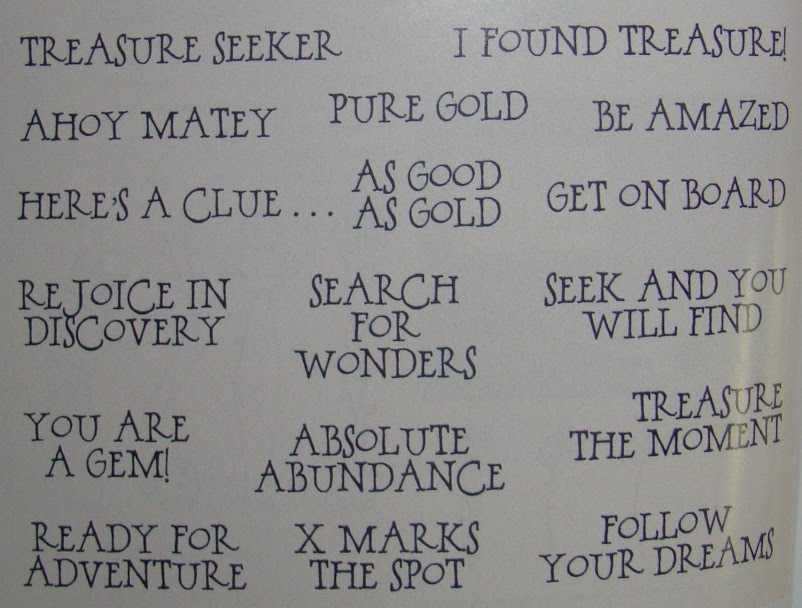 TREASURE SEEKER
I FOUND TREASURE!
AHOY MATEY
PURE GOLD
BE AMAZED
HERE'S A CLUE . . .
AS GOOD
AS GOLD
GET ON BOARD
REJOICE IN
DISCOVERY
SEARCH
FOR
WONDERS
SEEK AND YOU
WILL FIND
YOU ARE
A GEM!
ABSOLUTE
ABUNDANCE
TREASURE
THE MOMENT
READY FOR
ADVENTURE
X MARKS
THE SPOT
FOLLOW
YOUR DREAMS